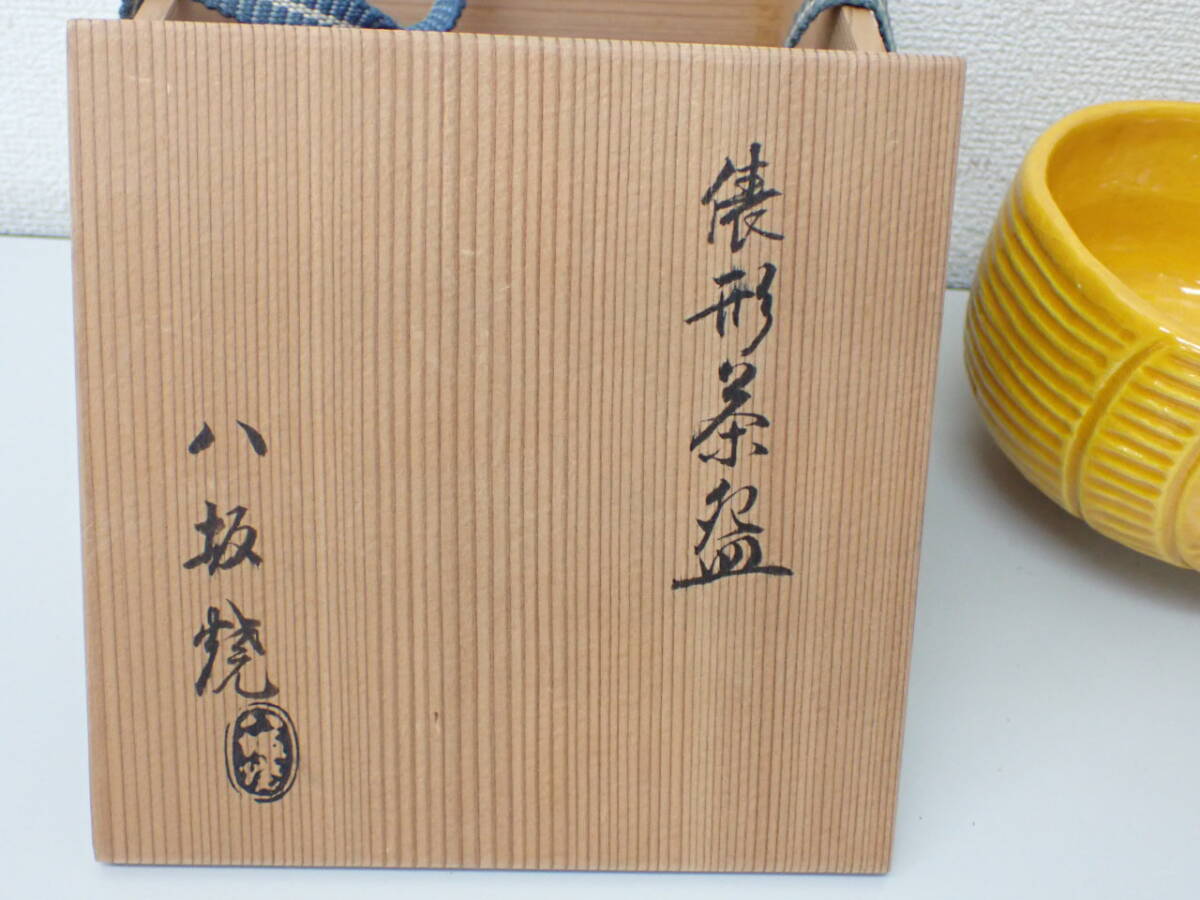 俵形茶盌
八坂焼